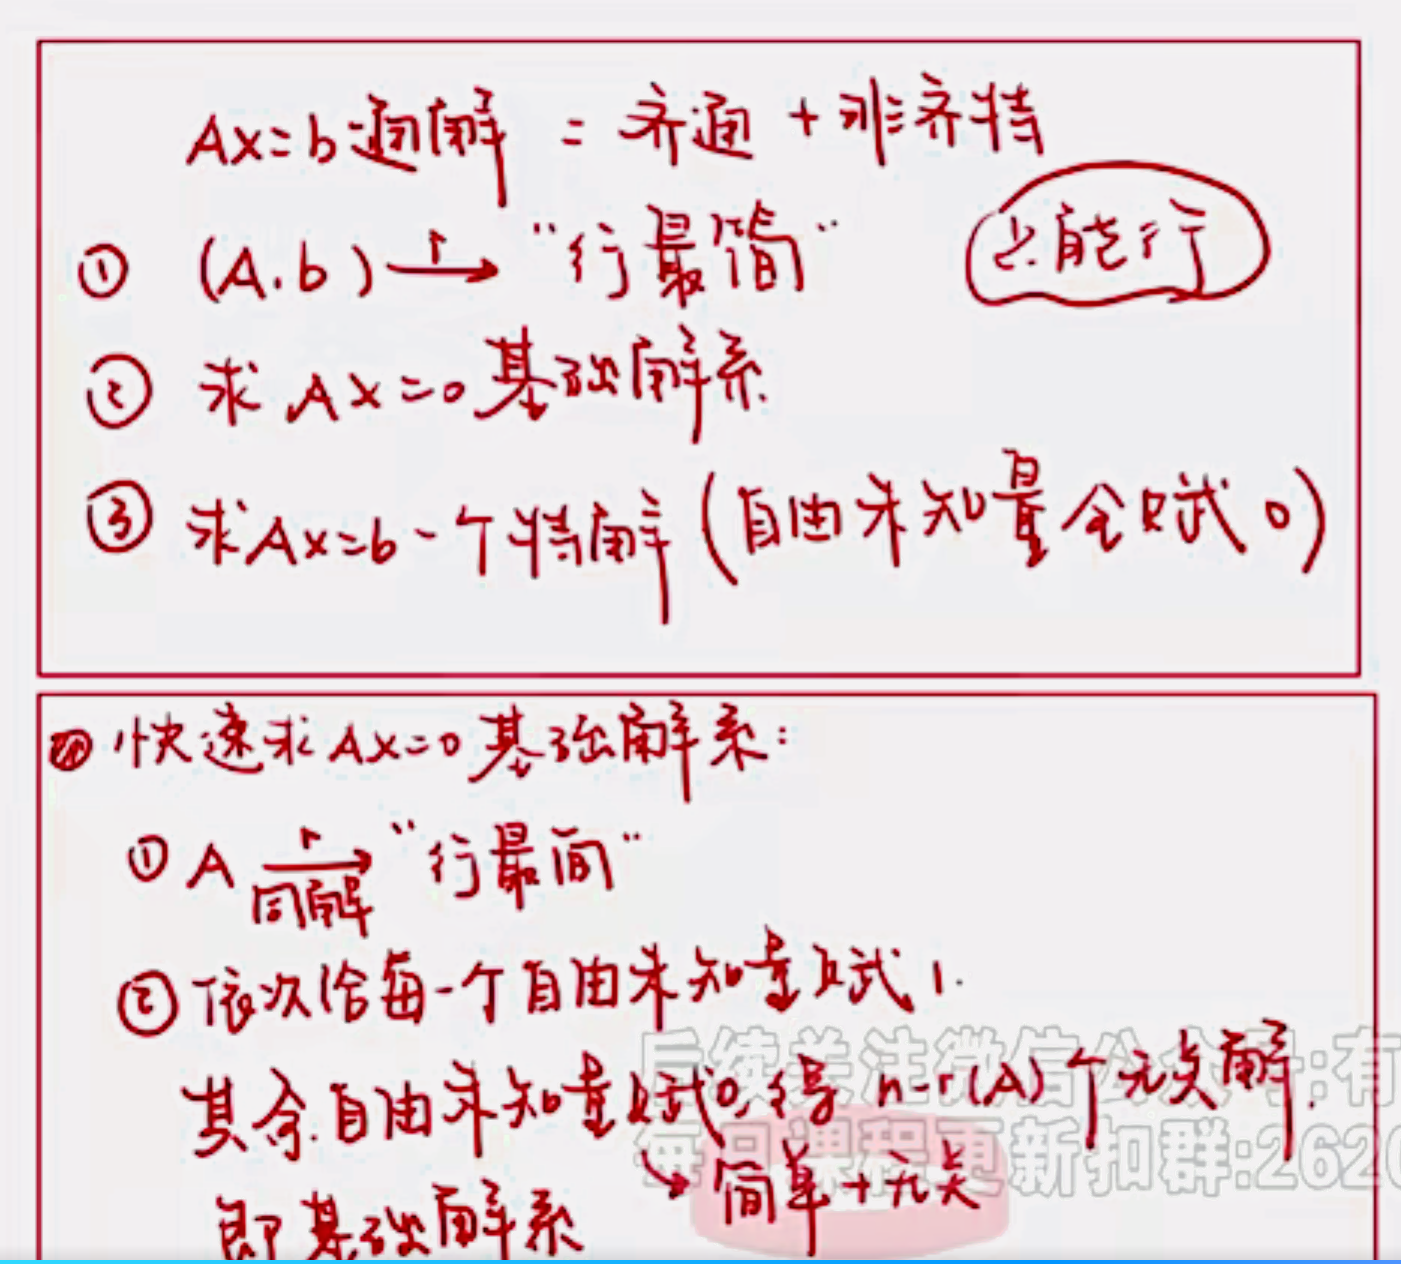 Ax=b通解 = 齐通 + 非齐特
① (A.b) r→ "行最简"
只能行
② 求 Ax=0 基础解系
③ 求Ax=b一个特解 (自由未知量全赋0)
快速求Ax=0基础解系:
① A r→ 同解 "行最简"
② 依次给每一个自由未知量赋1.
其余自由未知量赋0,得 n-r(A)个无关解.
→简单+无关
即基础解系
后续关注微信公众号:有
每日课程更新扣群:2620